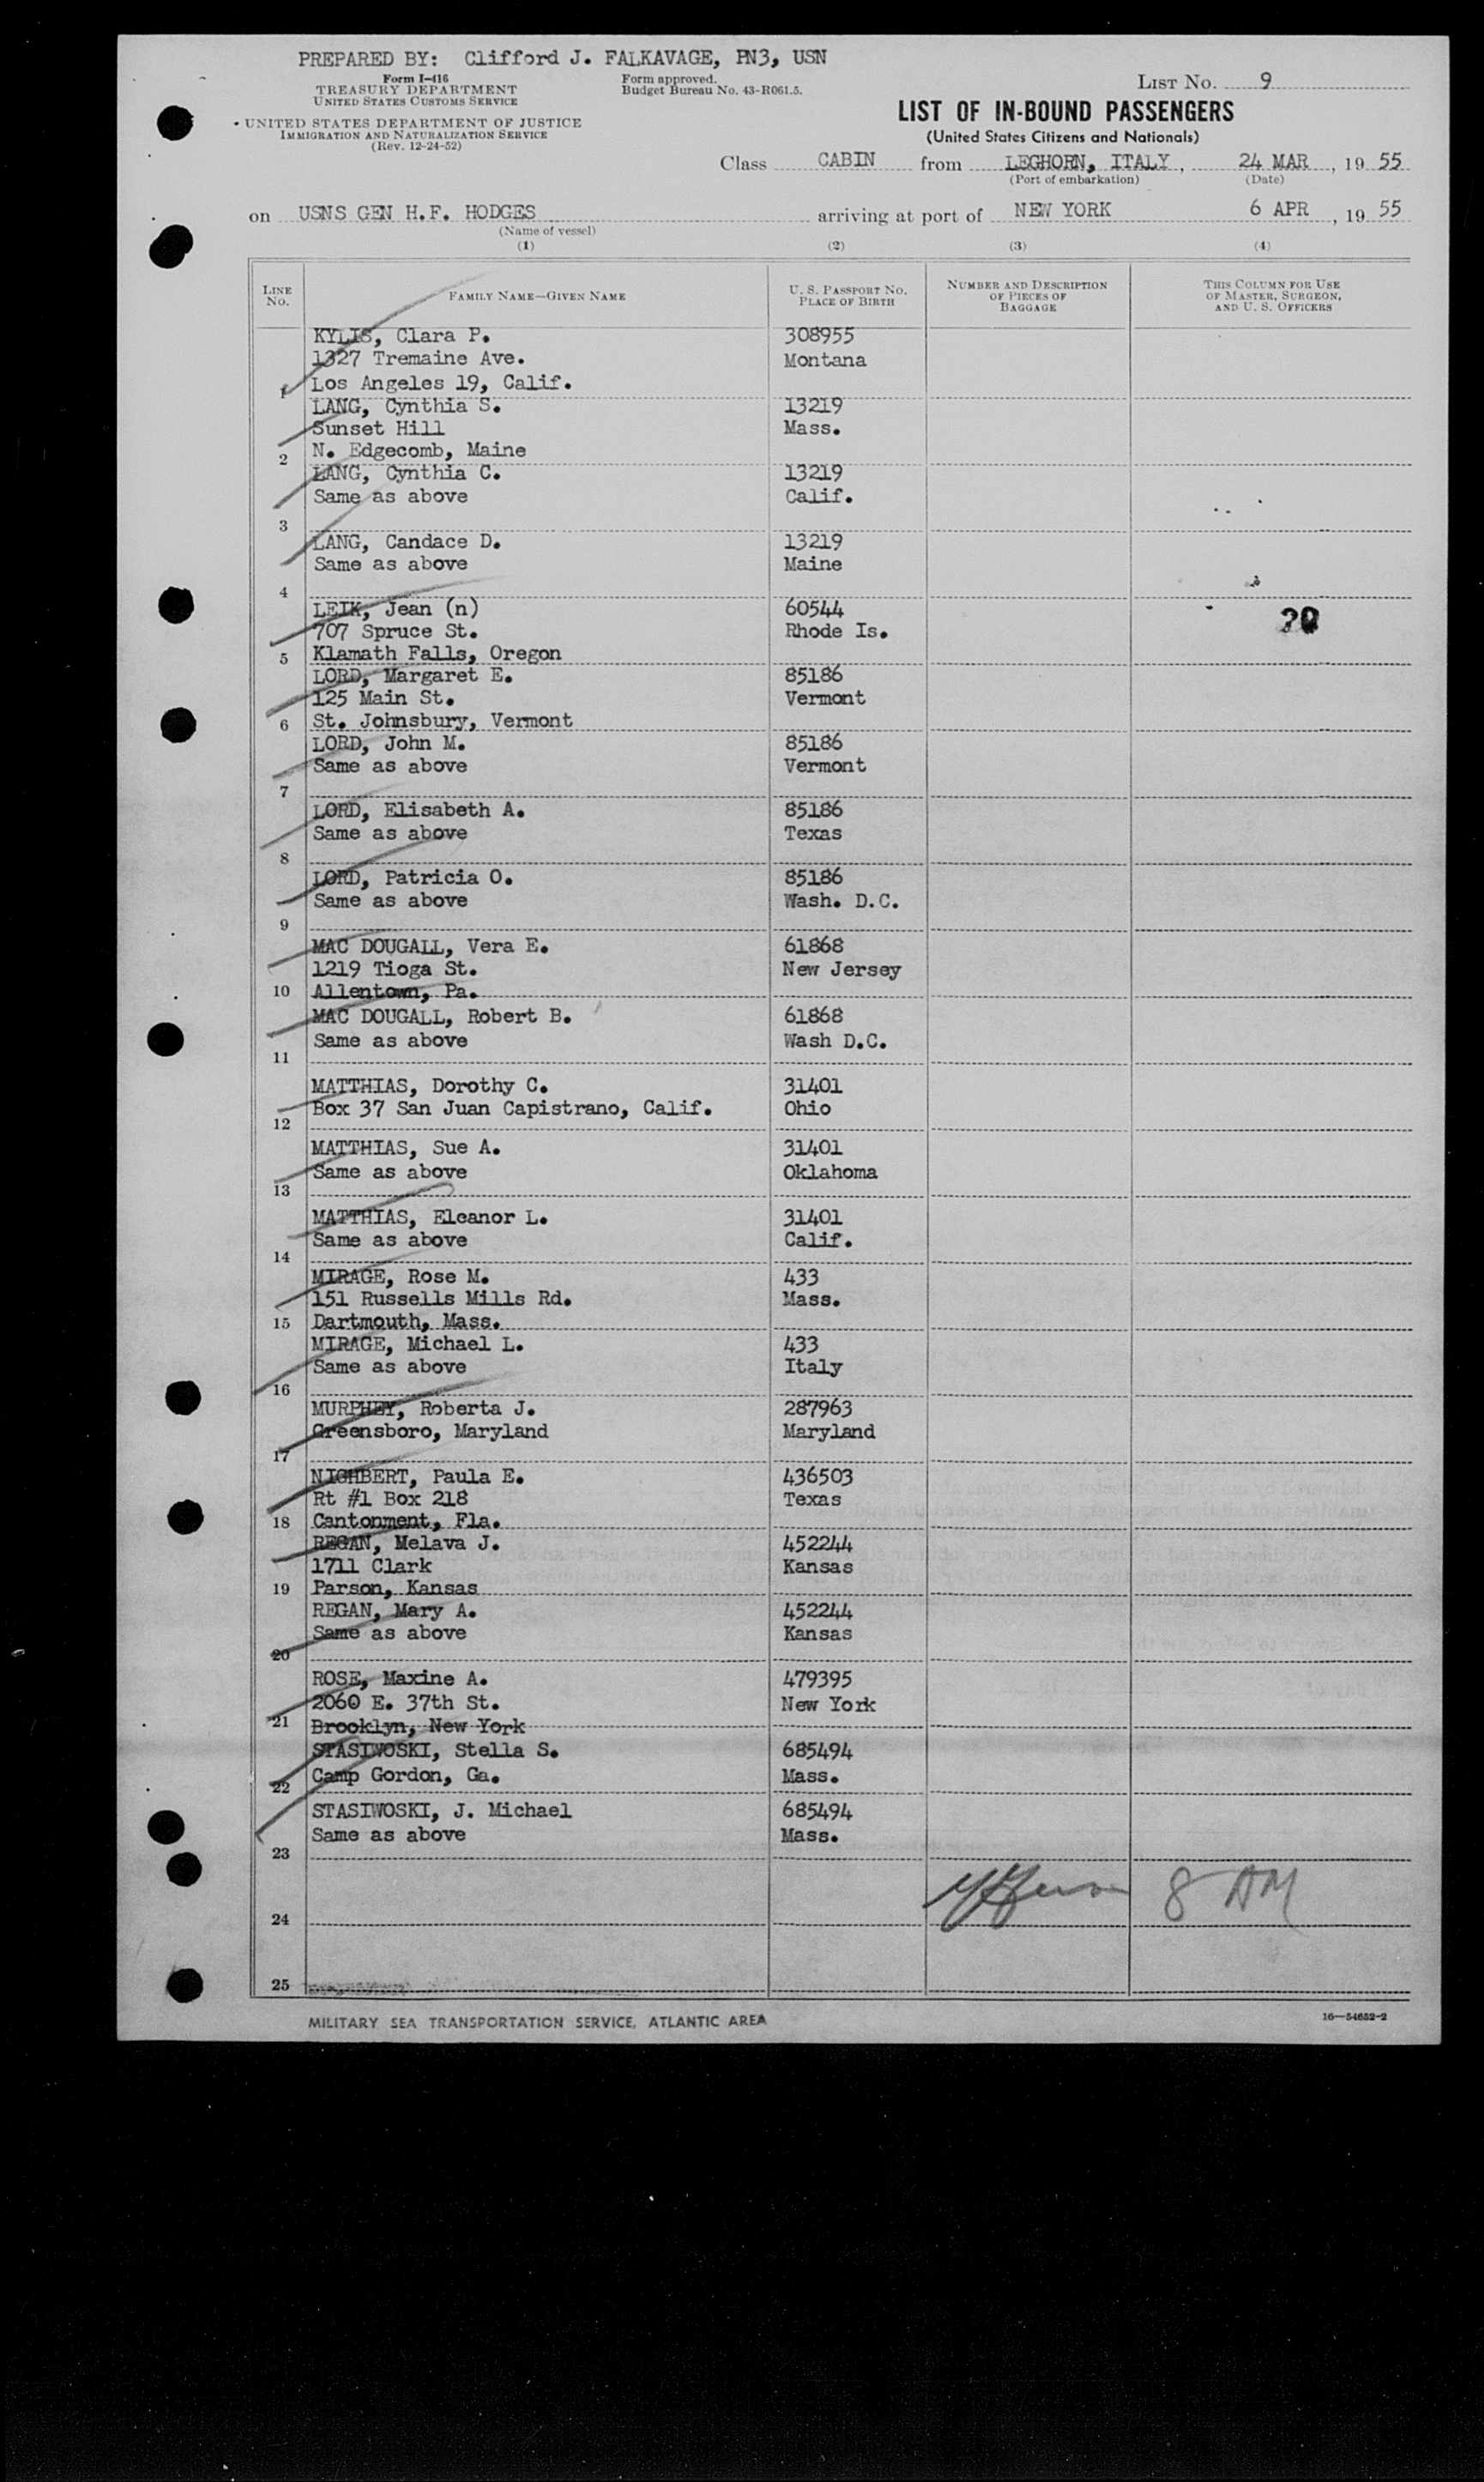 PREPARED BY: Clifford J. FALKAVAGE, PN3, USN
Form I-416
TREASURY DEPARTMENT
UNITED STATES CUSTOMS SERVICE
UNITED STATES DEPARTMENT OF JUSTICE
IMMIGRATION AND NATURALIZATION SERVICE
(Rev. 12-24-52)
Form approved.
Budget Bureau No. 43-R061.5.
LIST NO. 9
LIST OF IN-BOUND PASSENGERS
(United States Citizens and Nationals)
Class CABIN from LEGHORN, ITALY, 24 MAR, 19 55
(Port of embarkation) (Date)
on USNS GEN H.F. HODGES arriving at port of NEW YORK 6 APR, 19 55
(Name of vessel)
(1) (2) (3) (4)
LINE NO. FAMILY NAME—GIVEN NAME U. S. PASSPORT NO. PLACE OF BIRTH NUMBER AND DESCRIPTION OF PIECES OF BAGGAGE THIS COLUMN FOR USE OF MASTER, SURGEON, AND U. S. OFFICERS
KYLIS, Clara P. 308955
1327 Tremaine Ave. Montana
1 Los Angeles 19, Calif.
LANG, Cynthia S. 13219
Sunset Hill Mass.
2 N. Edgecomb, Maine
LANG, Cynthia C. 13219
Same as above Calif.
3
LANG, Candace D. 13219
Same as above Maine
4
LEIK, Jean (n) 60544
707 Spruce St. Rhode Is.
5 Klamath Falls, Oregon
LORD, Margaret E. 85186
125 Main St. Vermont
6 St. Johnsbury, Vermont
LORD, John M. 85186
Same as above Vermont
7
LORD, Elisabeth A. 85186
Same as above Texas
8
LORD, Patricia O. 85186
Same as above Wash. D.C.
9
MAC DOUGALL, Vera E. 61868
1219 Tioga St. New Jersey
10 Allentown, Pa.
MAC DOUGALL, Robert B. 61868
Same as above Wash D.C.
11
MATTHIAS, Dorothy C. 31401
Box 37 San Juan Capistrano, Calif. Ohio
12
MATTHIAS, Sue A. 31401
Same as above Oklahoma
13
MATTHIAS, Eleanor L. 31401
Same as above Calif.
14
MIRAGE, Rose M. 433
151 Russells Mills Rd. Mass.
15 Dartmouth, Mass.
MIRAGE, Michael L. 433
Same as above Italy
16
MURPHEY, Roberta J. 287963
Greensboro, Maryland Maryland
17
NIGHBERT, Paula E. 436503
Rt #1 Box 218 Texas
18 Cantonment, Fla.
REGAN, Melava J. 452244
1711 Clark Kansas
19 Parson, Kansas
REGAN, Mary A. 452244
Same as above Kansas
20
ROSE, Maxine A. 479395
2060 E. 37th St. New York
21 Brooklyn, New York
STASIWOSKI, Stella S. 685494
Camp Gordon, Ga. Mass.
22
STASIWOSKI, J. Michael 685494
Same as above Mass.
23
8 AM
24
25
MILITARY SEA TRANSPORTATION SERVICE, ATLANTIC AREA
16—54652-2